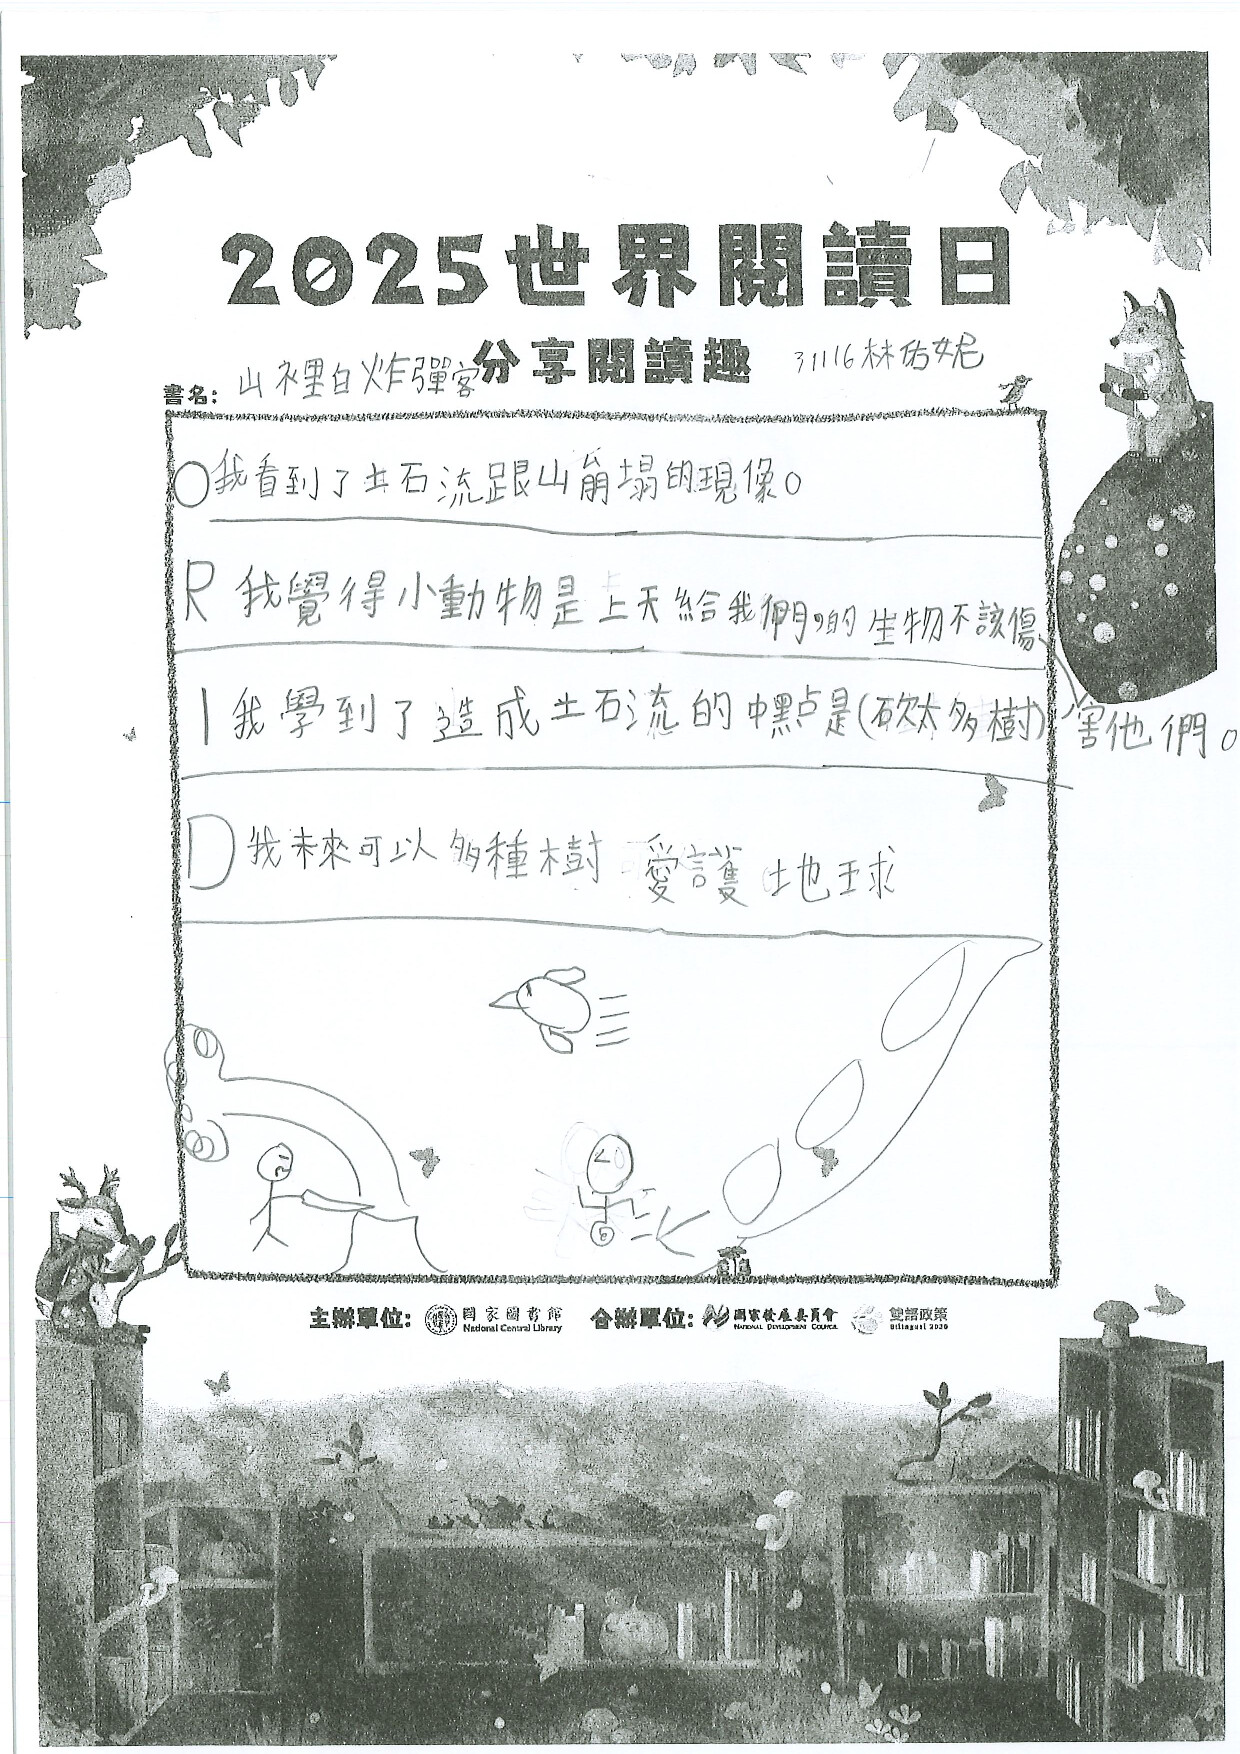 2025世界閱讀日
分享閱讀趣
31116林佑妮
書名: 山裡白炸彈客
O我看到了土石流跟山崩塌的現像。
R 我覺得小動物是上天給我們的生物不該傷
害他們。
I 我學到了造成土石流的中點是(砍太多樹)
D 我未來可以多種樹 愛護地球
主辦單位: 國家圖書館 National Central Library 合辦單位: 國家發展委員會 NATIONAL DEVELOPMENT COUNCIL 雙語政策 Bilingual 2030